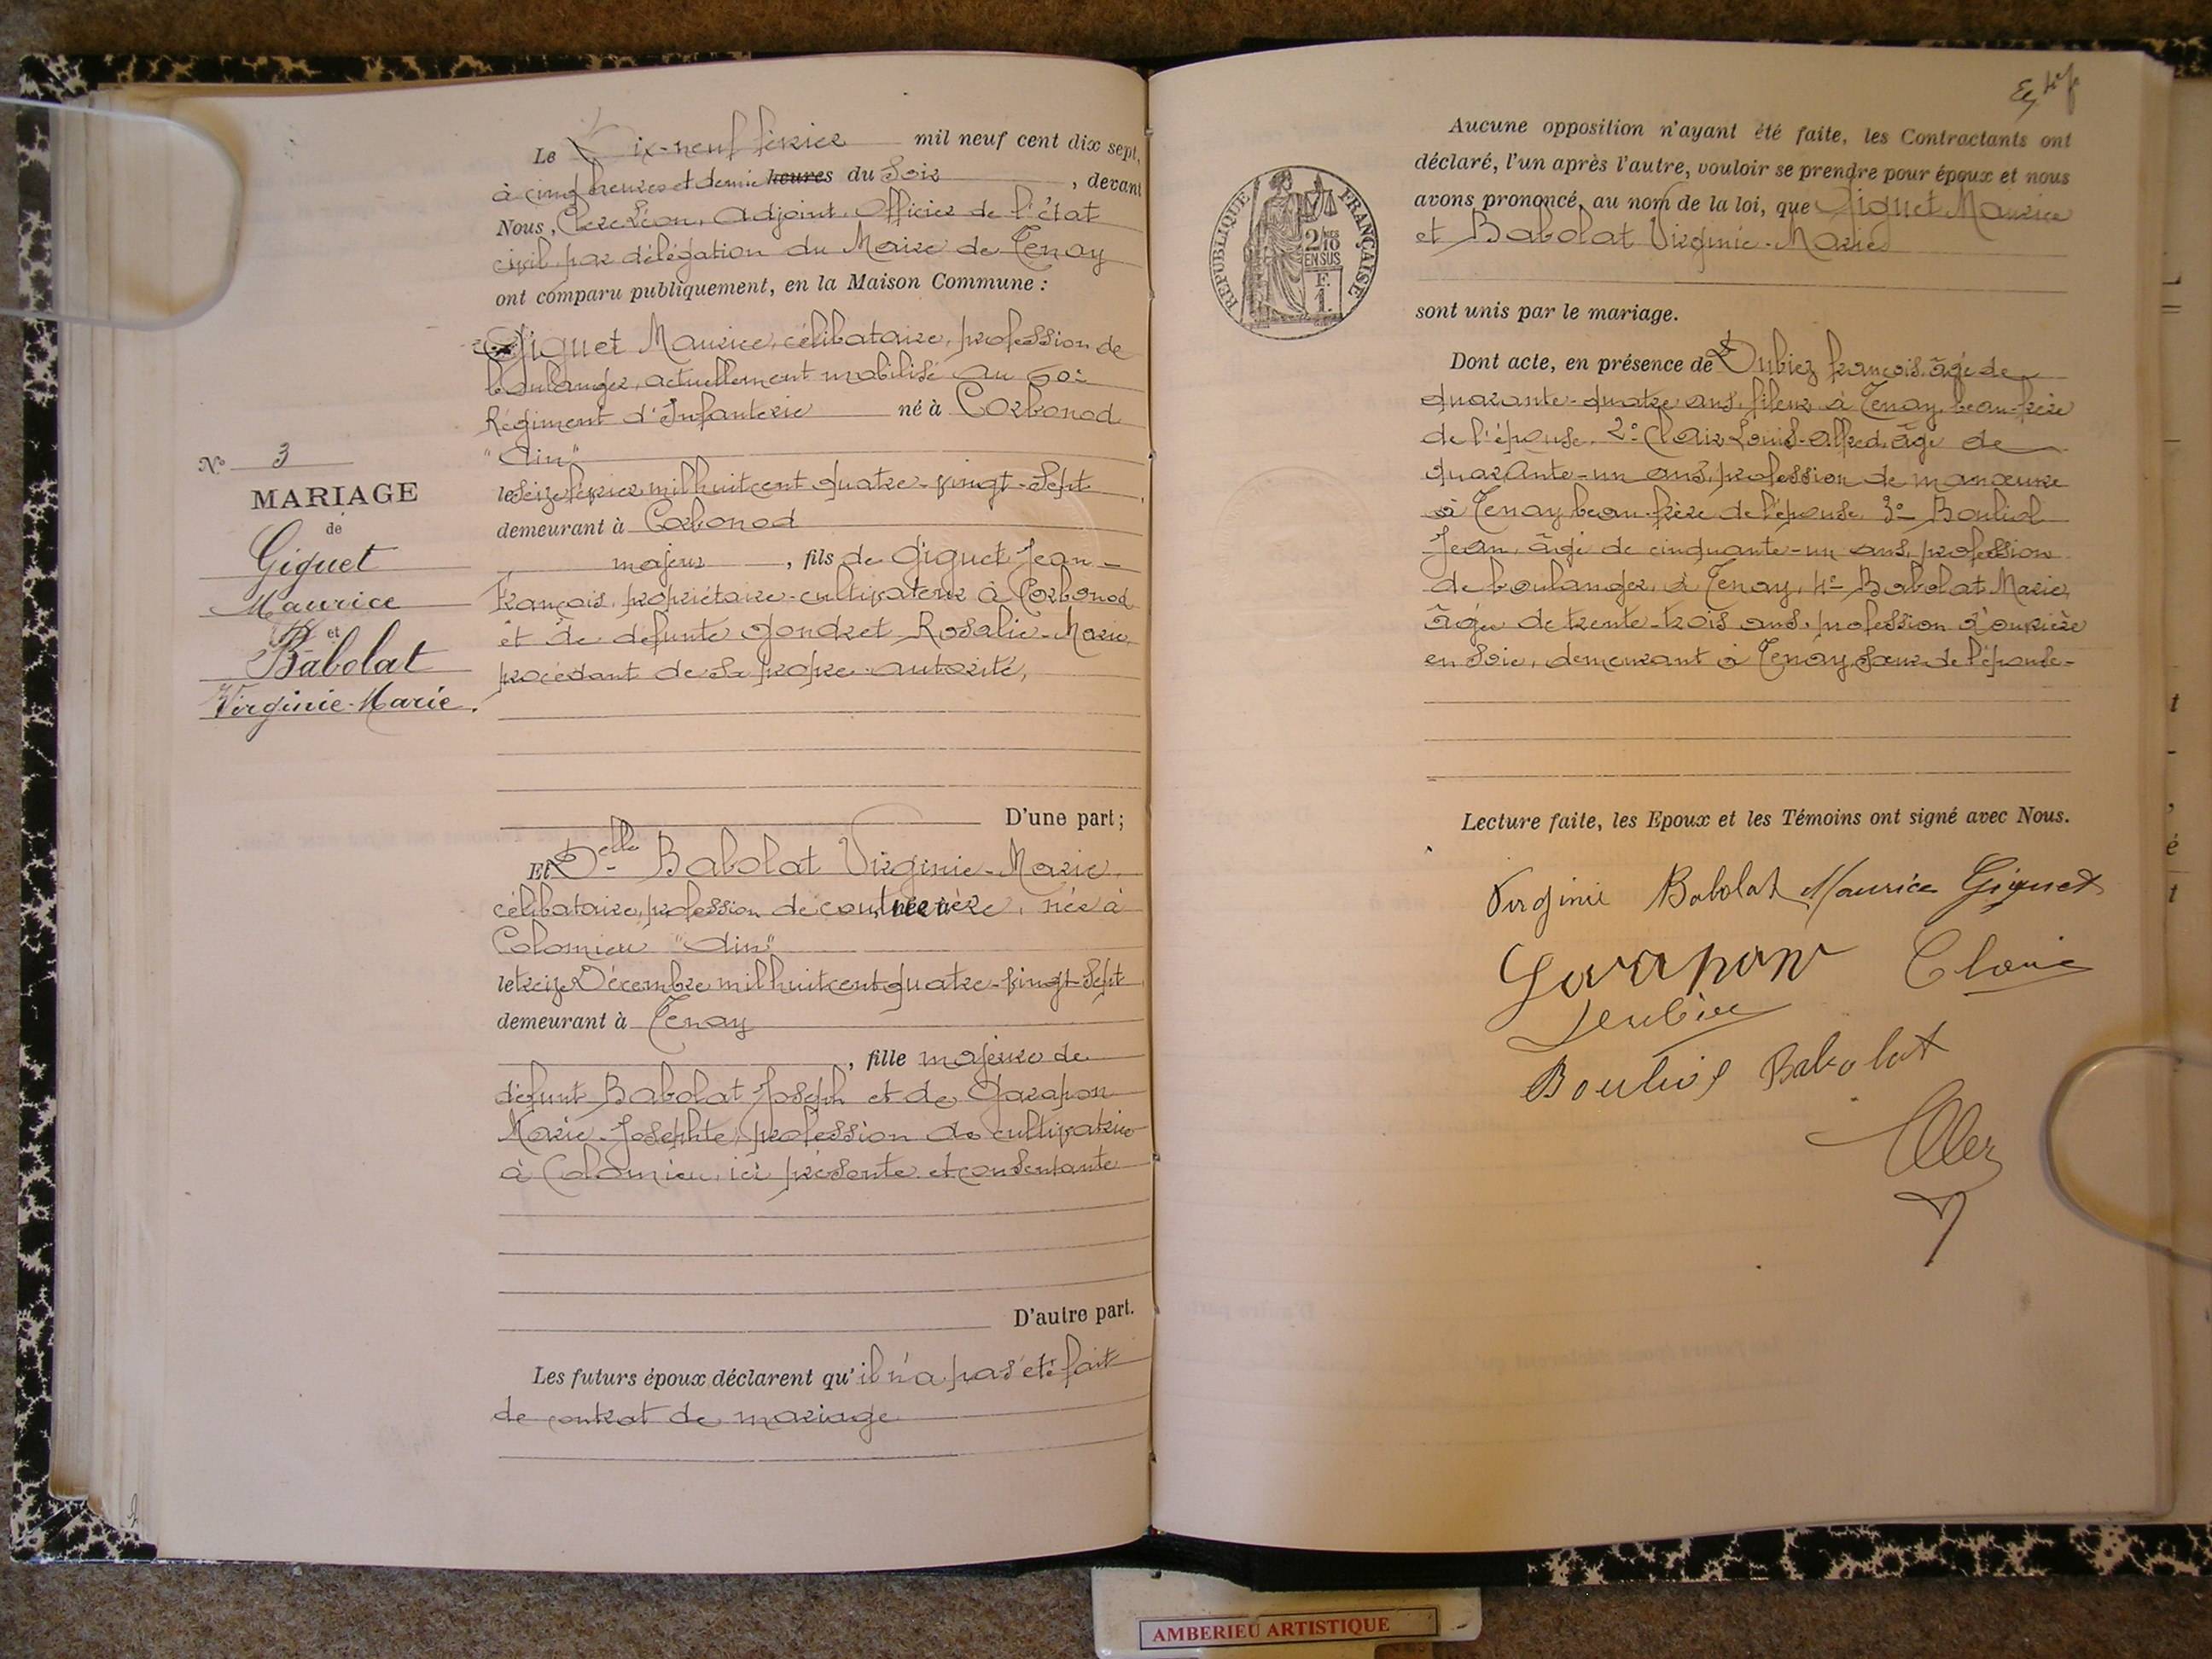 Le Dix-neuf février mil neuf cent dix sept,
à cinq heures et demie heures du Soir, devant
Nous, Clerc Léon, adjoint, Officier de l'état
civil par délégation du Maire de Tenay
ont comparu publiquement, en la Maison Commune :
Giguet Maurice, célibataire, profession de
boulanger, actuellement mobilisé au 60e
Régiment d'Infanterie né à Corbonod
"Ain"
le Seize février mil huit cent quatre-vingt-Sept
demeurant à Corbonod
majeur, fils de Giguet Jean-
François, propriétaire-cultivateur à Corbonod
et de défunte Gondret Rosalie-Marie
procédant de sa propre autorité,
D'une part ;
Et Delle Babolat Virginie-Marie,
célibataire, profession de couturière, née à
Colomieu "Ain"
le treize Décembre mil huit cent quatre-vingt-Sept
demeurant à Tenay
, fille majeure de
défunt Babolat Joseph et de Garapon
Marie-Josephte, profession de cultivatrice
à Colomieu, ici présente et consentante
D'autre part.
Les futurs époux déclarent qu'il n'a pas été fait
de contrat de mariage
No 3
MARIAGE
de
Giguet
Maurice
et
Babolat
Virginie-Marie.
Aucune opposition n'ayant été faite, les Contractants ont
déclaré, l'un après l'autre, vouloir se prendre pour époux et nous
avons prononcé, au nom de la loi, que Giguet Maurice
et Babolat Virginie-Marie
sont unis par le mariage.
Dont acte, en présence de Dubiez françois, âgé de
quarante-quatre ans, fileur à Tenay, beau-frère
de l'épouse. 2° Clair Louis-Alfred, âgé de
quarante-un ans, profession de manœuvre
à Tenay beau-frère de l'épouse 3° Bouliol
Jean, âgé de cinquante-un ans, profession
de boulanger, à Tenay, 4° Babolat Marie,
âgée de trente-trois ans, profession d'ouvrière
en Soie, demeurant à Tenay, sœur de l'épouse-
Lecture faite, les Epoux et les Témoins ont signé avec Nous.
Virginie Babolat Maurice Giguet
Garapon Claire
Bouliol Babolat
RÉPUBLIQUE FRANÇAISE
2/10
EN SUS
F.
1.
AMBERIEU ARTISTIQUE